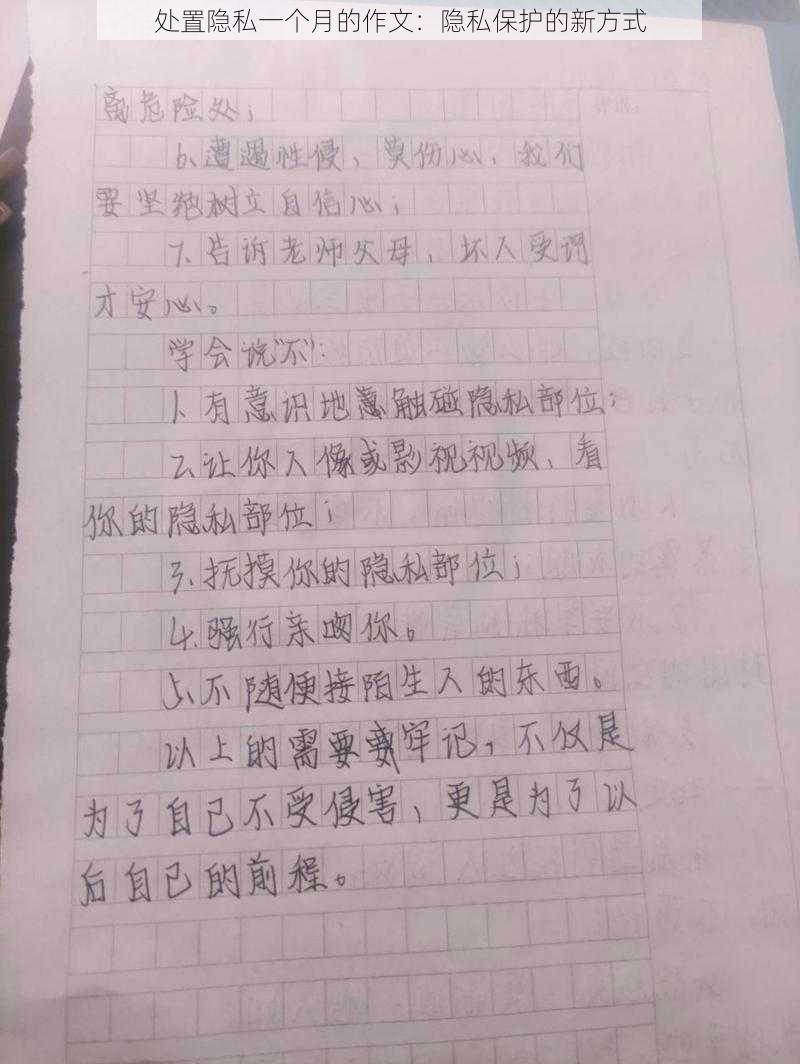 处置隐私一个月的作文：隐私保护的新方式
离危险处；
6.遭遇性侵，莫伤心，我们
要坚强树立自信心；
7.告诉老师父母，坏人受罚
才安心。
学会说"不"：
1.有意识地触碰隐私部位；
2.让你入像或影视视频，看
你的隐私部位；
3.抚摸你的隐私部位；
4.强行亲吻你。
5.不随便接陌生人的东西。
以上的需要牢记，不仅是
为了自己不受侵害，更是为了以
后自己的前程。